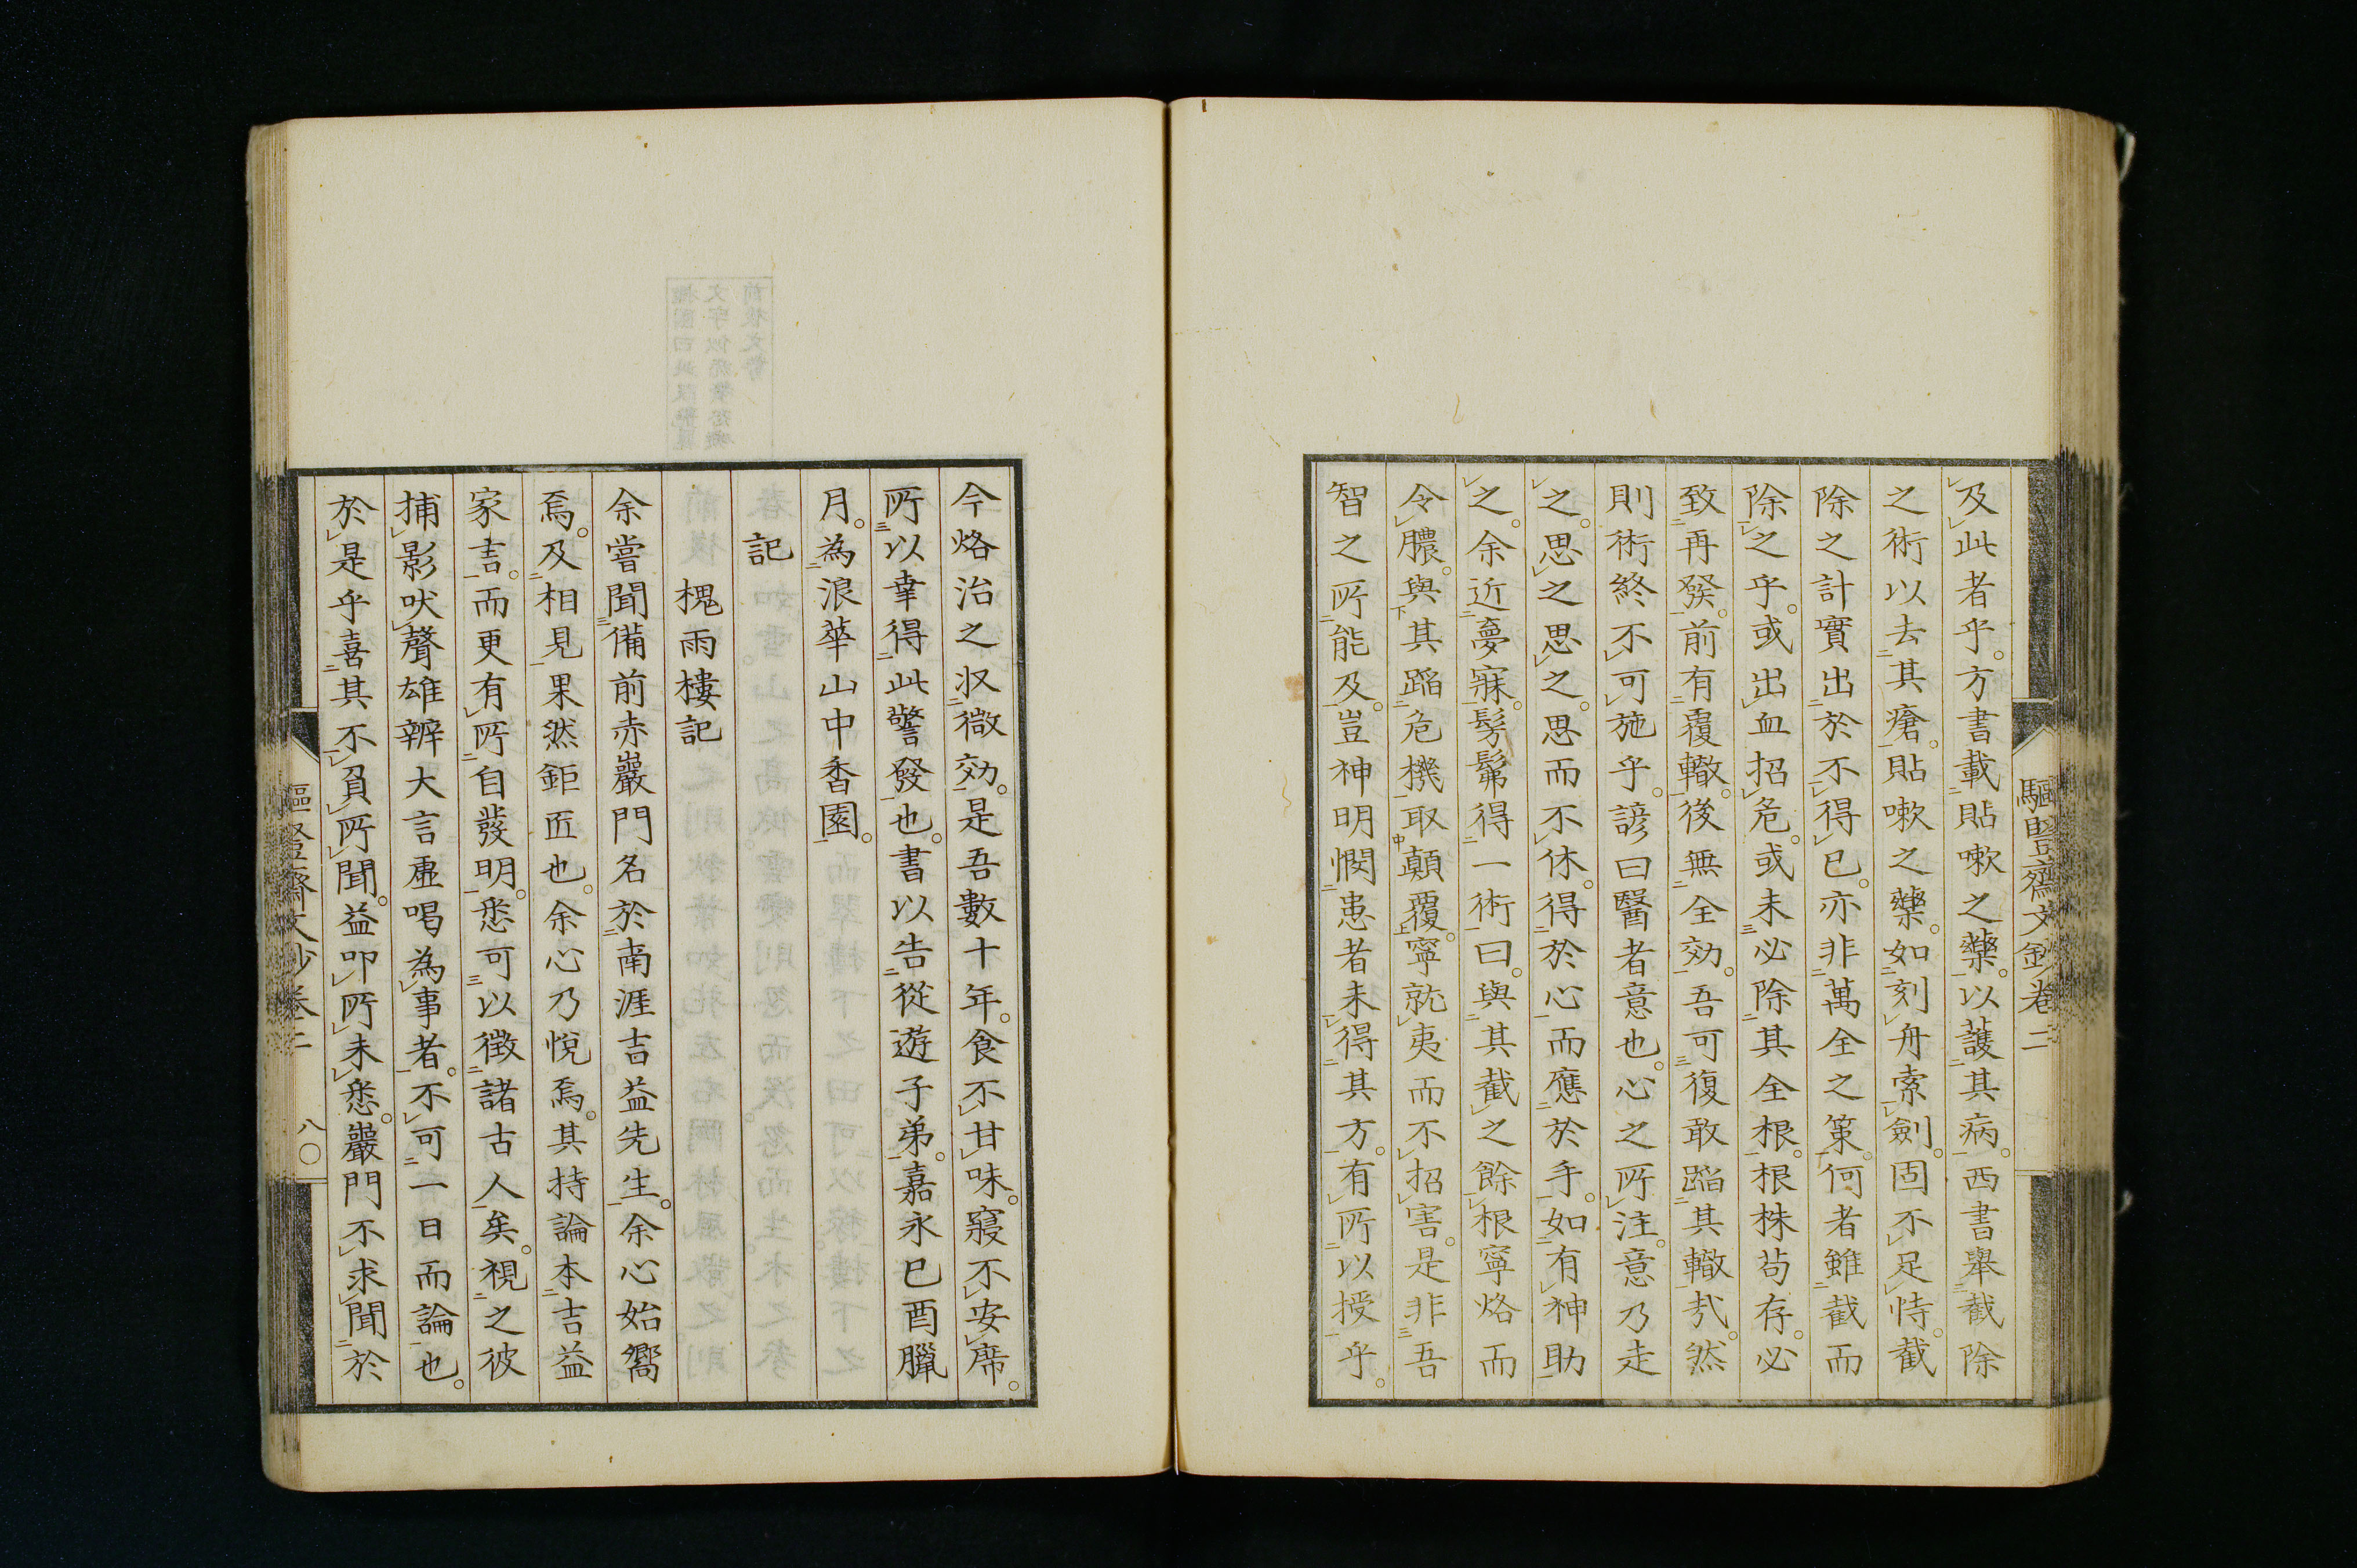 驅豎齋文鈔卷二
及此者乎。方書載貼嗽之藥。以護其病。西書舉截除
之術以去其瘡。貼嗽之藥。如刻舟索劍。固不足恃。截
除之計實出於不得已。亦非萬全之策。何者雖截而
除之乎。或出血招危。或未必除其全根。根株茍存。必
致再發。前有覆轍。後無全効。吾可復敢蹈其轍哉。然
則術終不可施乎。諺曰醫者意也。心之所注。意乃走
之。思之思之。思而不休。得於心而應於手。如有神助
之。余近夢寐。髣髴得一術曰。與其截之餘根寧烙而
令膿。與其蹈危機取顛覆。寧就夷而不招害。是非吾
智之所能及。豈神明憫患者未得其方。有所以授乎。
今烙治之収微効。是吾數十年。食不甘味。寢不安席。
所以幸得此警發也。書以告從遊子弟。嘉永己酉臘
月。為浪華山中香園。
記
槐雨樓記
余嘗聞備前赤巖門名於南涯吉益先生。余心始嚮
焉。及相見果然鉅匠也。余心乃悅焉。其持論本吉益
家言。而更有所自發明。悉可以徵諸古人矣。視之彼
捕影吠聲雄辨大言虛喝為事者。不可一日而論也。
於是乎喜其不負所聞。益叩所未悉。巖門不求聞於
驅豎齋文鈔卷二
八〇